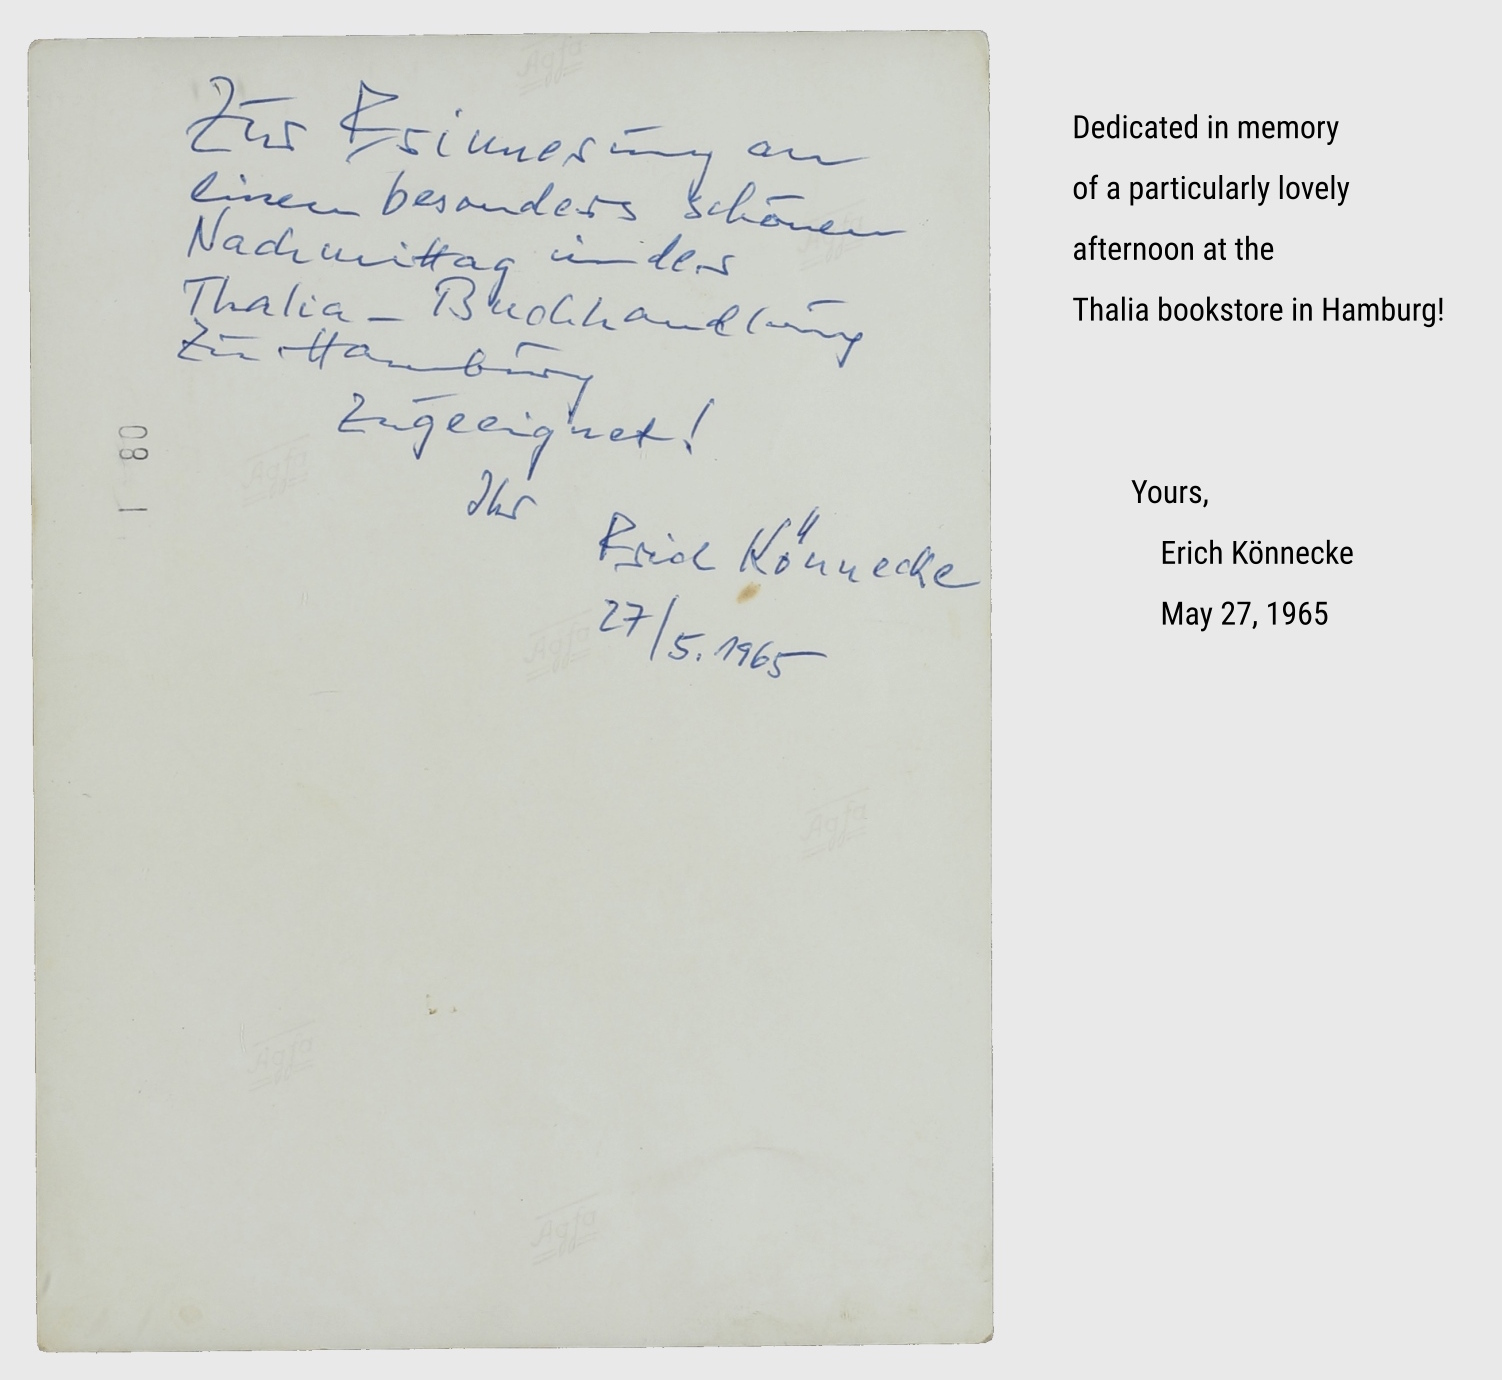 Zur Erinnerung an
einen besonders schönen
Nachmittag in der
Thalia – Buchhandlung
zu Hamburg
zugeeignet!
Ihr
Erich Könnecke
27/5. 1965
08 I
Agfa
Agfa
Agfa
Agfa
Agfa
Agfa
Agfa
Dedicated in memory
of a particularly lovely
afternoon at the
Thalia bookstore in Hamburg!
Yours,
Erich Könnecke
May 27, 1965